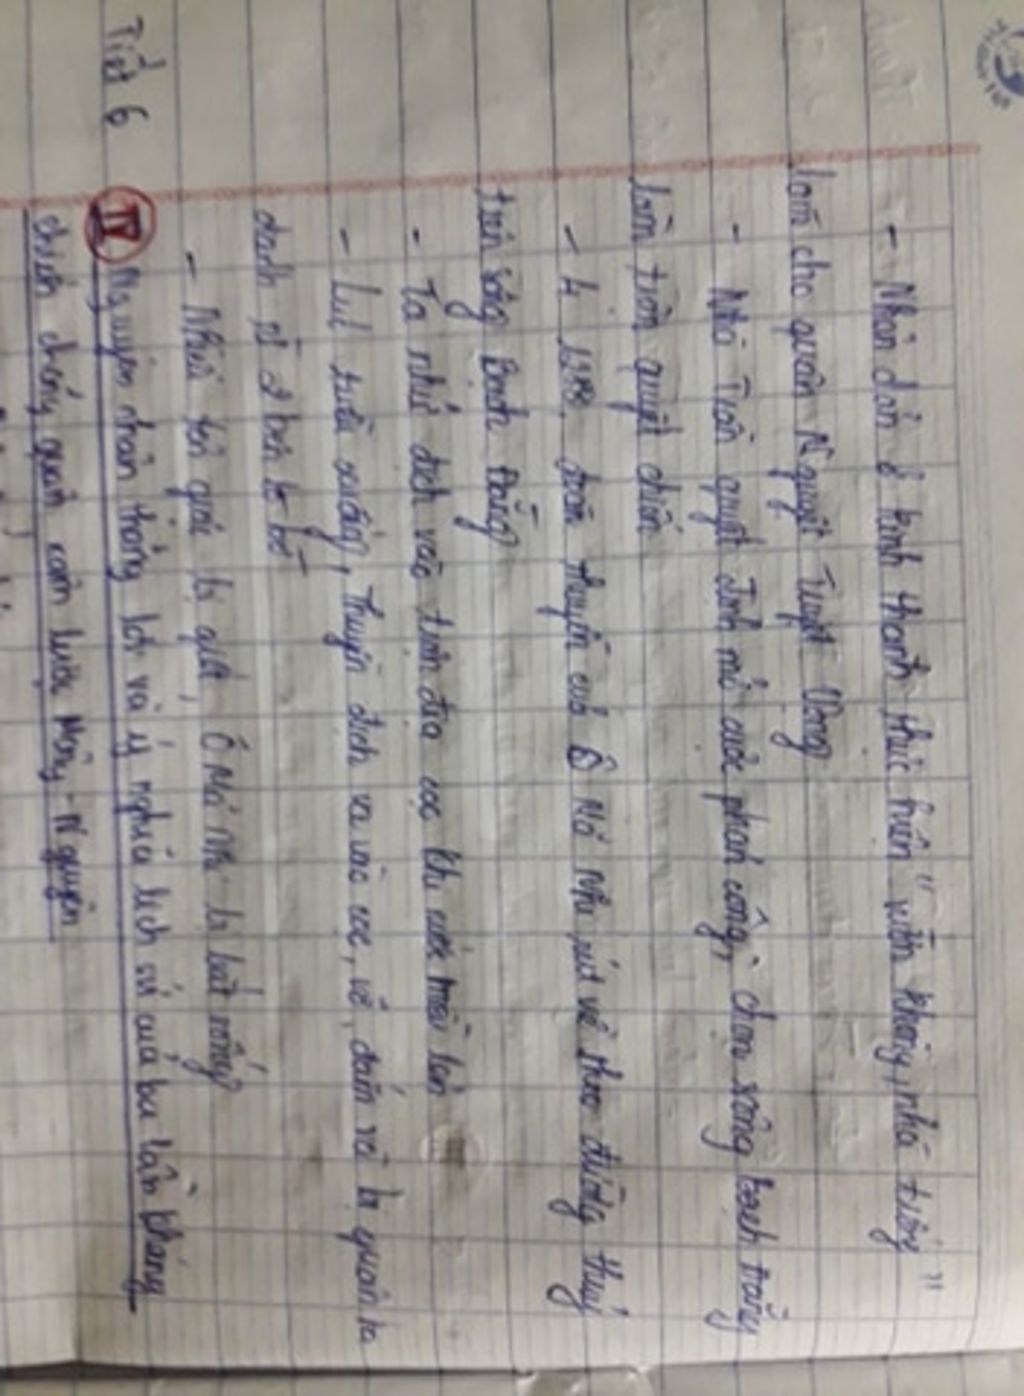 - Nhân dân ở kinh thành thực hiện "vườn không, nhà trống"
làm cho quân Nguyên Tuyệt Vọng
- Nhà Trần quyết định mở cuộc phản công, chọn sông Bạch Đằng
làm trận quyết chiến
- 4. 1288, đoàn thuyền của Ô Mã Nhi rút về theo đường thuỷ
trên sông Bạch Đằng
- Ta nhử địch vào trận địa cọc khi nước triều lên
- Lúc triều xuống, thuyền địch va vào cọc, vỡ, đắm và bị quân ta
đánh từ 2 bên bờ
- Nhiều tên giặc bị giết, Ô Mã Nhi bị bắt sống
Tiết 6
IV Nguyên nhân thắng lợi và ý nghĩa lịch sử của ba lần kháng
chiến chống quân xâm lược Mông - Nguyên